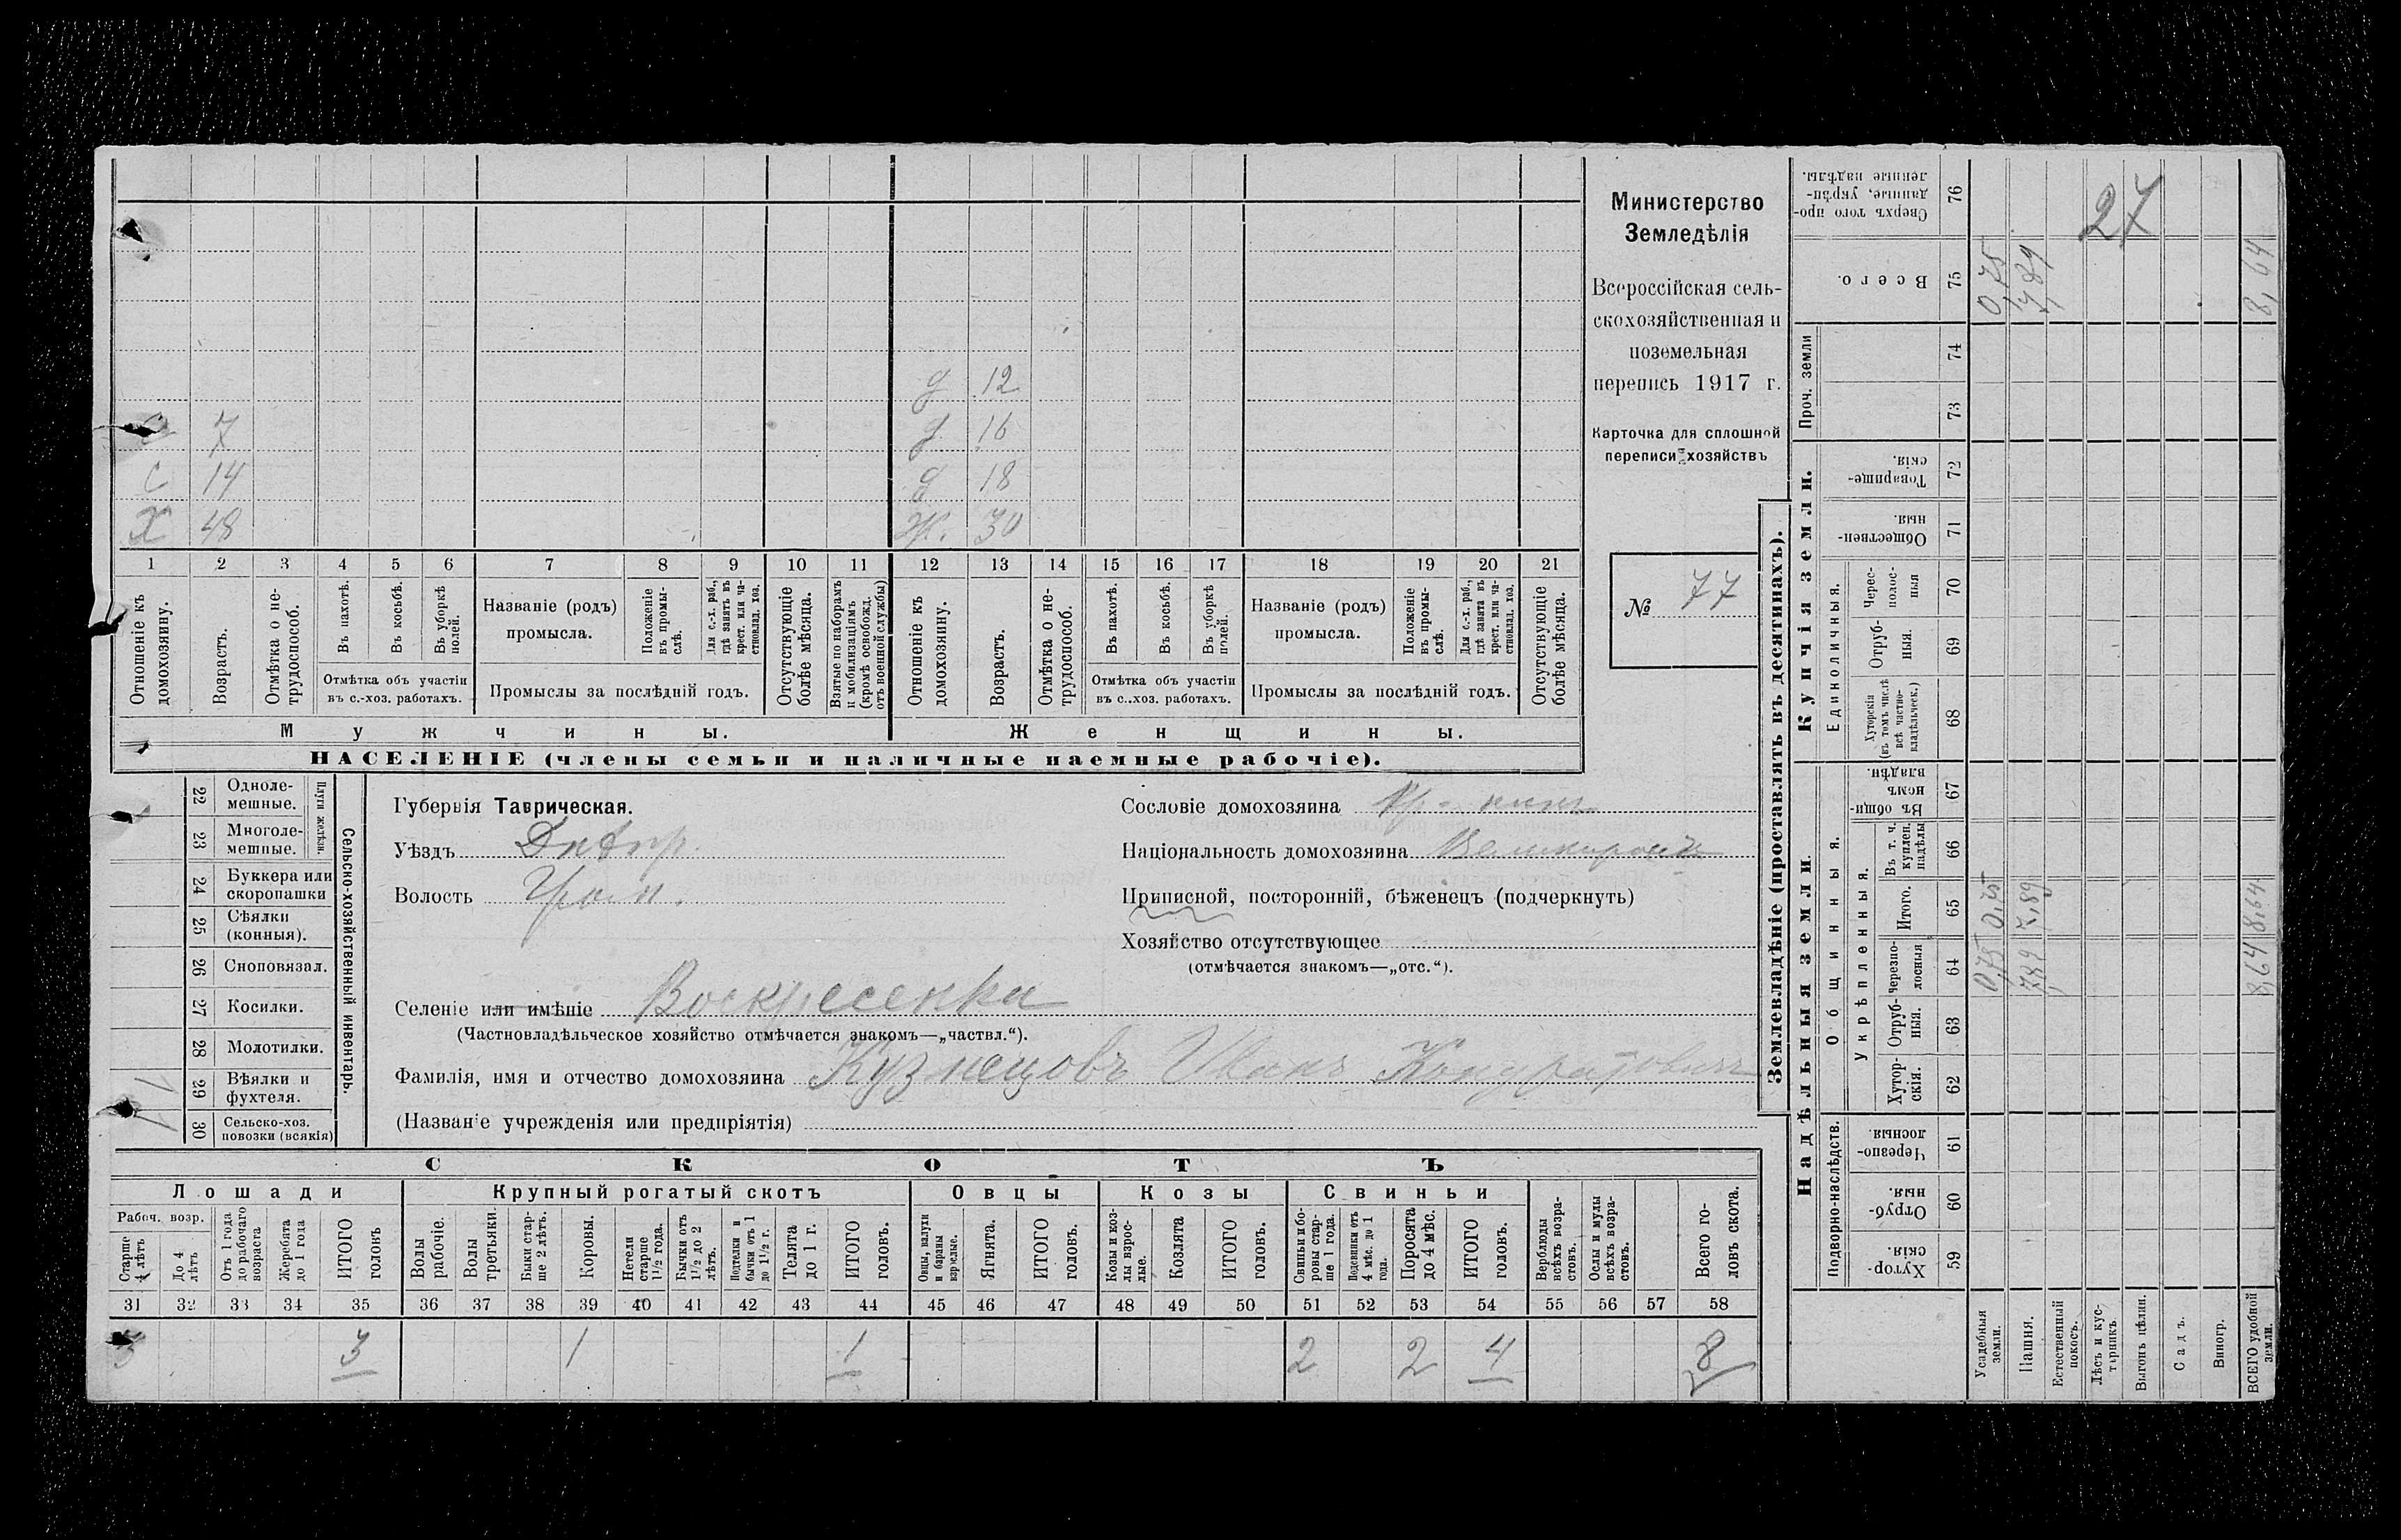 Министерство
Земледѣлія
Всероссійская сель-
скохозяйственная и
поземельная
перепись 1917 г.
Карточка для сплошной
переписи хозяйствъ
№ 77
д 12
С 7 д 16
С 14 д 18
Х 48 Ж. 30
1 2 3 4 5 6 7 8 9 10 11 12 13 14 15 16 17 18 19 20 21
Отношеніе къ домохозяину.
Возрастъ.
Отмѣтка о не-трудоспособ.
Въ пахотѣ.
Въ косьбѣ.
Въ уборкѣ полей.
Отмѣтка объ участіи
въ с.-хоз. работахъ.
Названіе (родъ)
промысла.
Положеніе въ промы-слѣ.
Для с.-х. раб., гдѣ занятъ въ крест. или ча-стновлад. хоз.
Промыслы за послѣдній годъ.
Отсутствующіе болѣе мѣсяца.
Взятые по наборамъ и мобилизаціямъ (кромѣ освобожд. отъ военной службы)
Отношеніе къ домохозяину.
Возрастъ.
Отмѣтка о не-трудоспособ.
Въ пахотѣ.
Въ косьбѣ.
Въ уборкѣ полей.
Отмѣтка объ участіи
въ с..хоз. работахъ.
Названіе (родъ)
промысла.
Положеніе въ промы-слѣ.
Для с.-х. раб., гдѣ занята въ крест. или ча-стновлад. хоз.
Промыслы за послѣдній годъ.
Отсутствующіе болѣе мѣсяца.
Мужчины. Женщины.
НАСЕЛЕНІЕ (члены семьи и наличные наемные рабочіе).
22 Одноле-мешные.
23 Многоле-мешные.
Плуги желѣзн.
24 Буккера или скоропашки
25 Сѣялки (конныя).
26 Сноповязал.
27 Косилки.
28 Молотилки.
29 Вѣялки и фухтеля.
30 Сельско-хоз. повозки (всякія)
Сельско-хозяйственный инвентарь.
Губернія Таврическая.
Уѣздъ Днѣпр.
Волость
Селеніе или имѣніе Воскресенка
(Частновладѣльческое хозяйство отмѣчается знакомъ—„частвл.“).
Фамилія, имя и отчество домохозяина Кузнецовъ Иванъ Кондратовичъ
(Названіе учрежденія или предпріятія)
Сословіе домохозяина
Національность домохозяина Великороссъ
Приписной, посторонній, бѣженецъ (подчеркнуть)
Хозяйство отсутствующее
(отмѣчается знакомъ—„отс.“).
СКОТЪ
Лошади Крупный рогатый скотъ Овцы Козы Свиньи
Рабоч. возр.
Старше 4 лѣтъ
До 4 лѣтъ
Отъ 1 года до рабочаго возраста
Жеребята до 1 года
ИТОГО головъ
Волы рабочіе.
Волы третьяки.
Быки стар-ше 2 лѣтъ.
Коровы.
Нетели старше 1½ года.
Бычки отъ 1½ до 2 лѣтъ.
Подтелки и бычки отъ 1 до 1½ г.
Телята до 1 г.
ИТОГО головъ.
Овцы, валухи и бараны взрослые.
Ягнята.
ИТОГО головъ.
Козы и коз-лы взрос-лые.
Козлята
ИТОГО головъ.
Свиньи и бо-ровы стар-ше 1 года.
Подсвинки отъ 4 мѣс. до 1 года.
Поросята до 4 мѣс.
ИТОГО головъ.
Верблюды всѣхъ возра-стовъ.
Ослы и мулы всѣхъ возра-стовъ.
Всего го-ловъ скота.
31 32 33 34 35 36 37 38 39 40 41 42 43 44 45 46 47 48 49 50 51 52 53 54 55 56 57 58
3 3 1 1 2 2 4 8
Землевладѣніе (проставлять въ десятинахъ).
Купчія земли.
Надѣльныя земли.
27
Сверхъ того про-данные, укрѣп-ленные надѣлы. 76
Всего. 75 0,75 7,89 8,64
Проч. земли 74 73
Товарище-скія. 72
Обществен-ныя. 71
Единоличныя.
Черес-полос-ныя 70
Отруб-ныя. 69
Хуторскія (въ томъ числѣ всѣ частно-владѣльческ.) 68
Общинныя.
Въ общи-номъ владѣн. 67
Укрѣпленныя.
Въ т. ч. куплен. надѣлы 66
Итого. 65 0,75 7,89 8,64
Черезпо-лосныя 64 0,75 7,89 8,64
Отруб-ныя. 63
Хутор-скія. 62
Подворно-наслѣдств.
Черезпо-лосныя. 61
Отруб-ныя. 60
Хутор-скія. 59
Усадебныя земли.
Пашня.
Естественный покосъ.
Лѣсъ и кус-тарникъ
Выгонъ цѣлин.
Садъ.
Виногр.
ВСЕГО удобной земли.